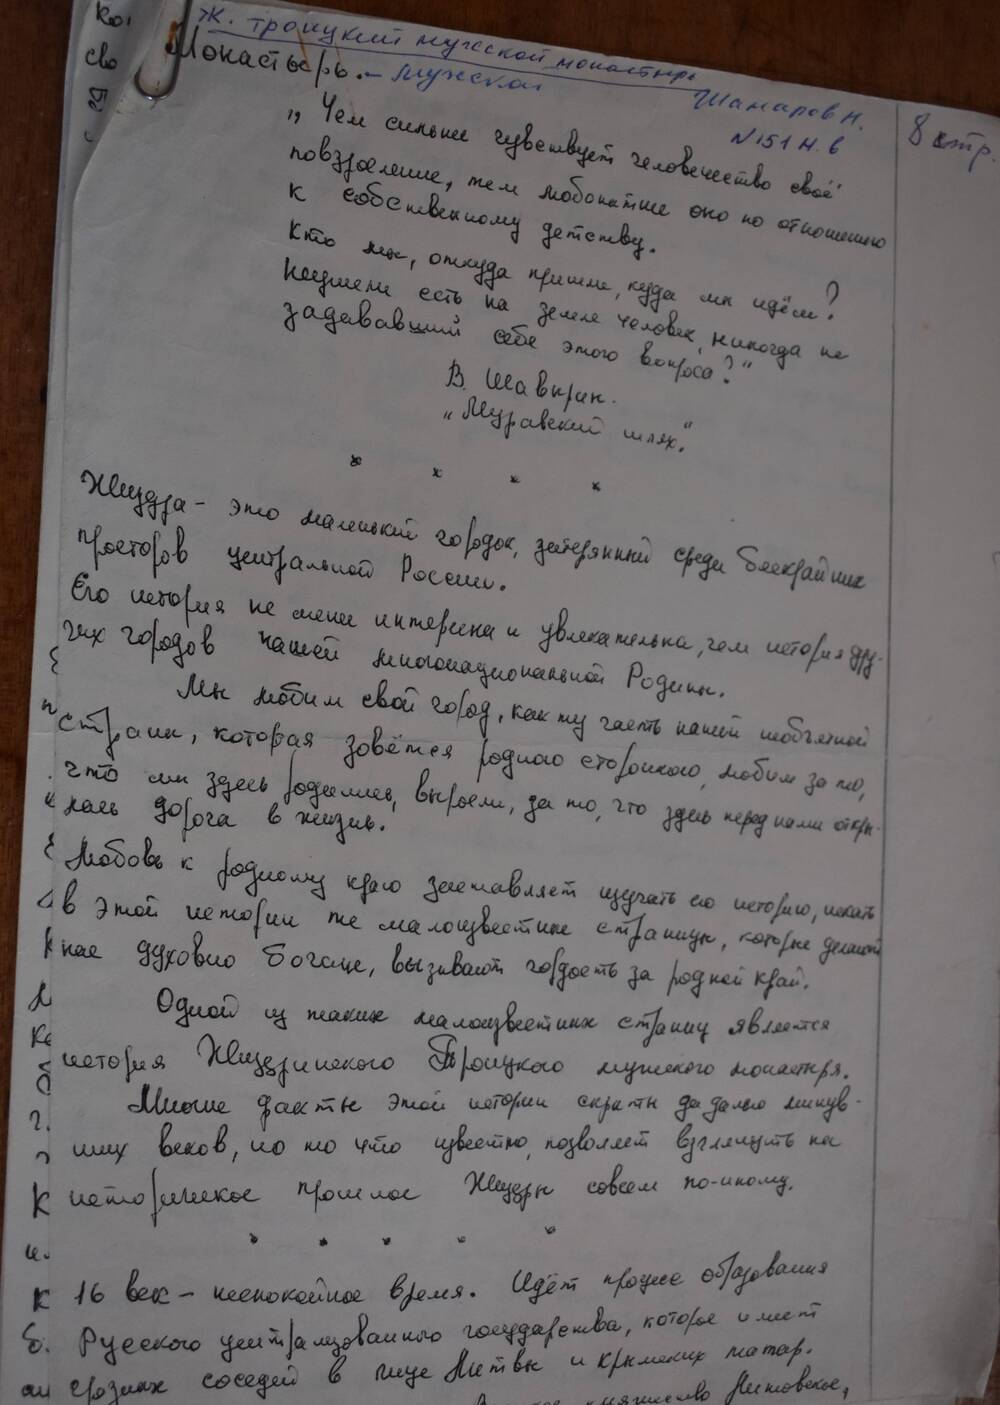 Ж. Троицкий мужской монастырь
Монастырь. - мужской
Шамаров Н.
N 151 н. в
8 стр.
„Чем сильнее чувствует человечество своё
повзросление, тем любопытнее оно по отношению
к собственному детству.
Кто мы, откуда пришли, куда мы идём?
Неужели есть на земле человек, никогда не
задававший себе этого вопроса?"
В. Шавырин.
„Муравский шлях."
Жиздра - это маленький городок, затерянный среди бескрайних
просторов центральной России.
Его история не менее интересна и увлекательна, чем история дру-
гих городов нашей многонациональной Родины.
Мы любим свой город, как ту часть нашей необъятной
страны, которая зовётся родною сторонкою, любим за то,
что мы здесь родились, выросли, да то, что здесь перед нами откры-
лась дорога в жизнь.
Любовь к родному краю заставляет изучать его историю, искать
в этой истории те малоизвестные страницы, которые делают
нас духовно богаче, вызывают гордость за родной край.
Одной из таких малоизвестных страниц является
история Жиздринского Троицкого мужского монастыря.
Многие факты этой истории скрыты далью минув-
ших веков, но то что известно, позволяет взглянуть на
историческое прошлое Жиздры совсем по-иному.
16 век - неспокойное время. Идёт процесс образования
Русского централизованного государства, которое имеет
грозных соседей в лице Литвы и крымских татар.
княжество Литовское,